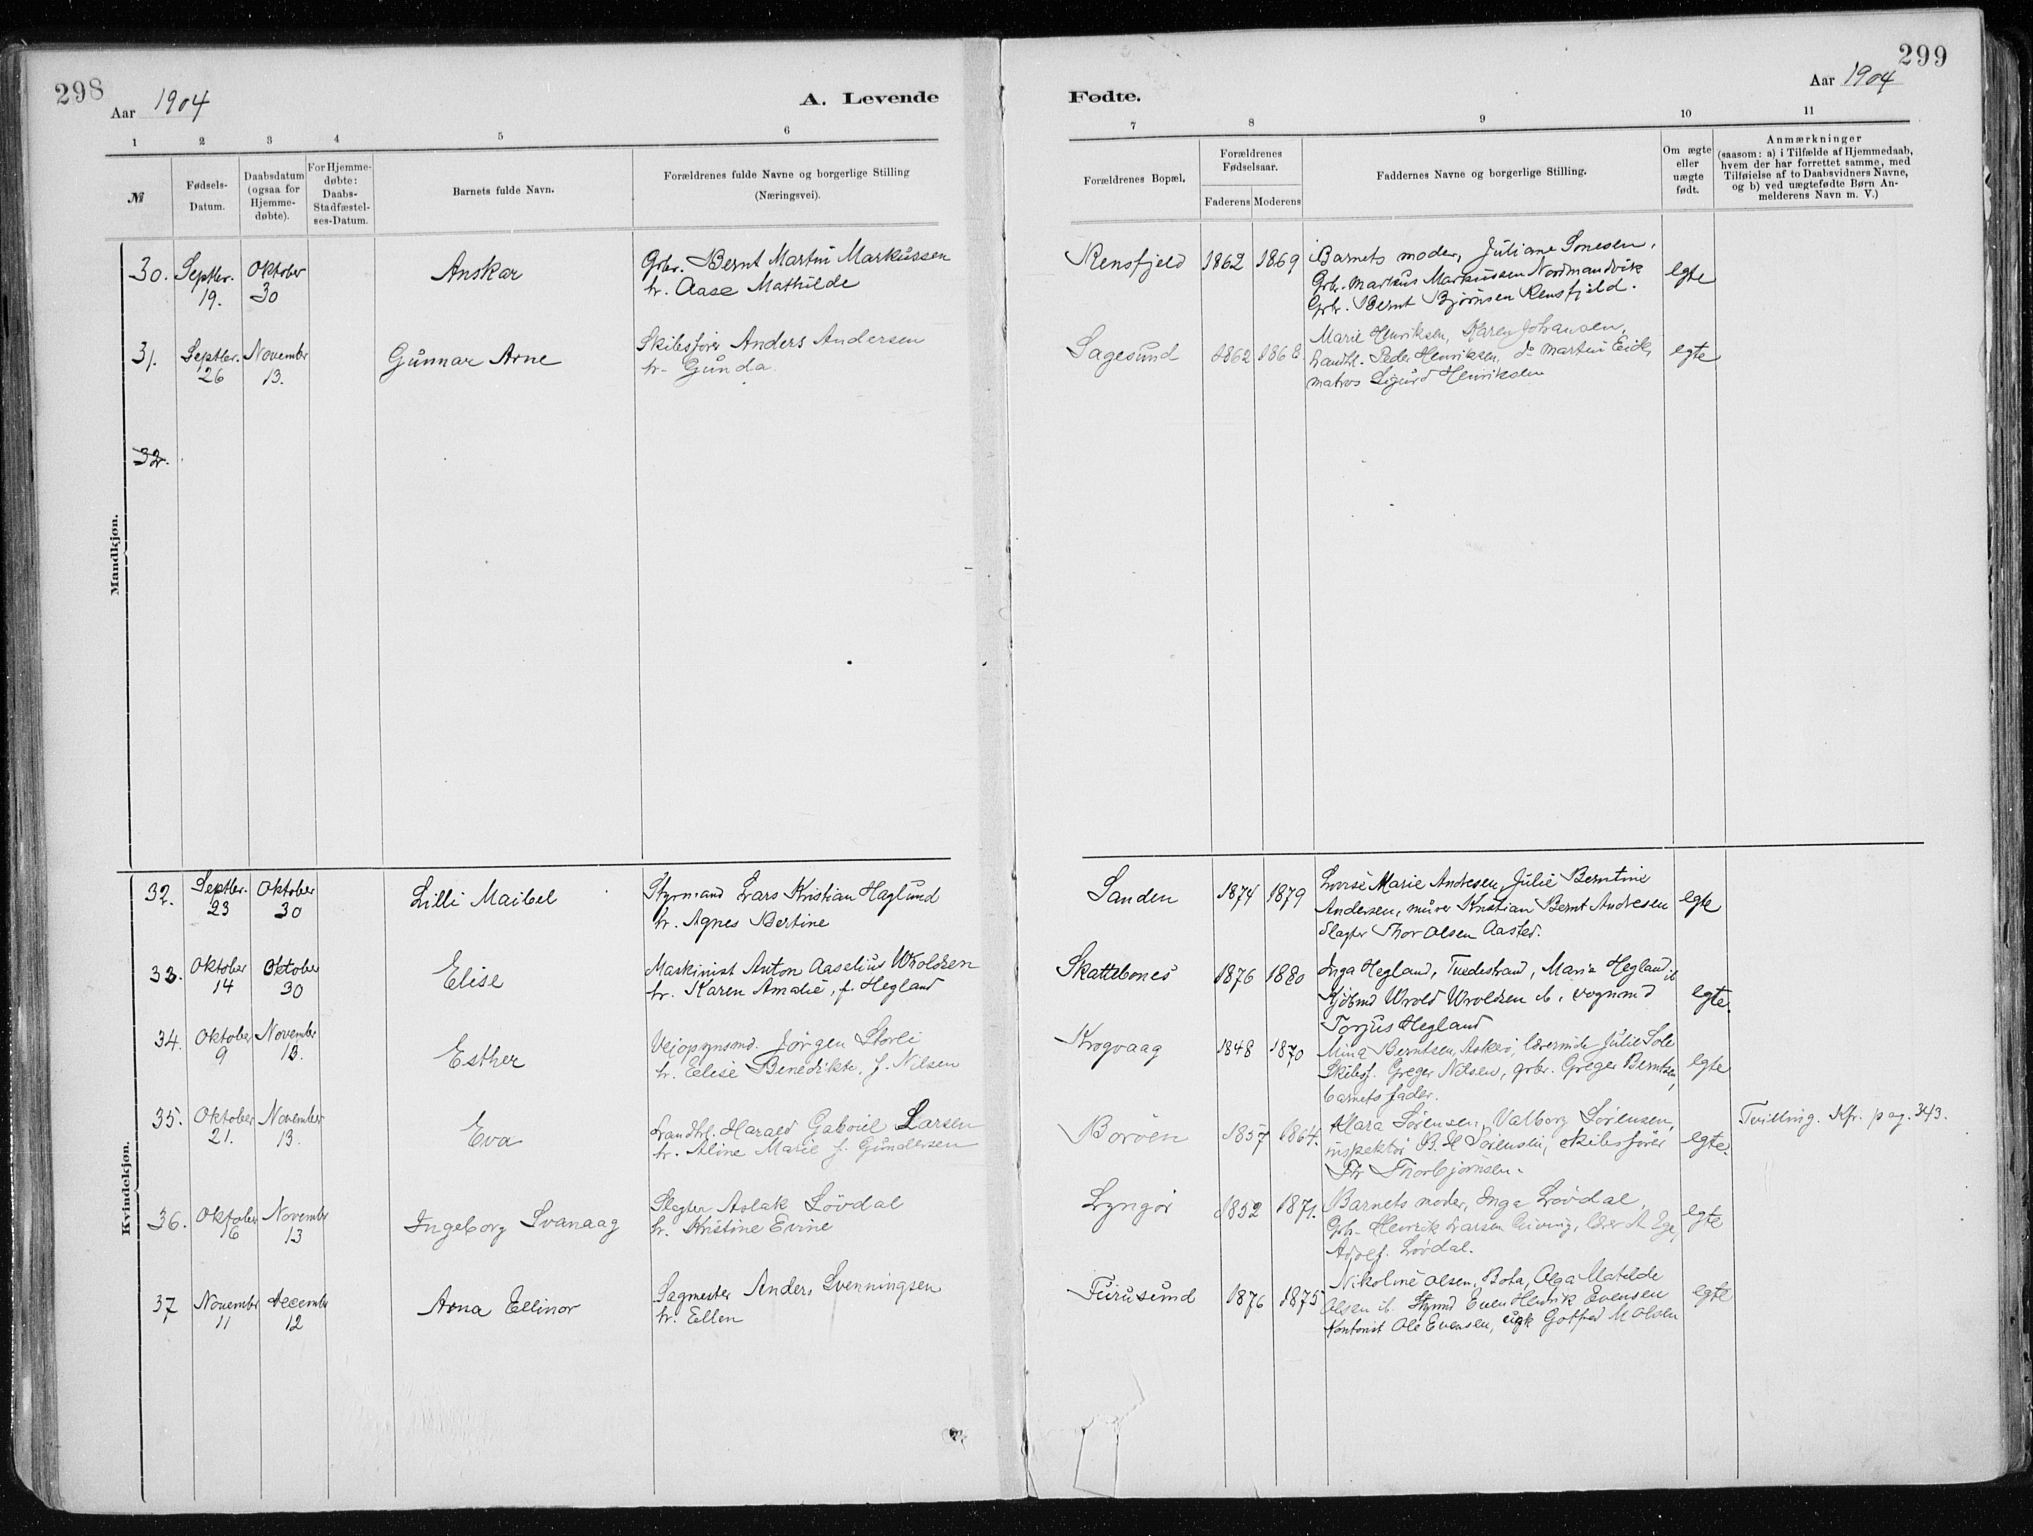 298
Aar 1904
A. Levende
1 2 3 4 5 6
№
Fødsels-Datum.
Daabsdatum (ogsaa for Hjemme-døbte).
For Hjemme-døbte: Daabs-Stadfæstel-ses-Datum.
Barnets fulde Navn.
Forældrenes fulde Navne og borgerlige Stilling
(Næringsvei).
Mandkjøn.
30. Septbr. 19. Oktober 30 Anskar
Gbr. Bernt Martin Markussen
h. Aase Mathilde
31. Septbr. 26 November 13. Gunnar Arne
Skibsfører Anders Andersen
h. Gunda
32.
Kvindekjøn.
32. Septbr. 23 Oktober 30 Lilli Maibel
Styrmand Lars Kristian Haglund
h. Agnes Bertine
33. Oktober 14 Oktober 30 Elise
Maskinist Anton Aaselius Wroldsen
h. Karen Amalie, f. Hegland
34. Oktober 9 November 13. Esther
Vejopsynsmd. Jørgen Storli
h. Elise Benedikte, f. Nilsen
35. Oktober 21. November 13. Eva
Landhl. Harald Gabriel Larsen
h. Aline Marie f. Gundersen
36. Oktober 16 November 13 Ingeborg Svanaag
Slagter Aslak Løvdal
h. Kristine Evine
37 November 11 December 12 Arna Ellinor
Sagmester Anders Svenningsen
h. Ellen
299
Aar 1904
Fødte.
7 8 9 10 11
Forældrenes Bopæl.
Forældrenes Fødselsaar.
Faderens Moderens
Faddernes Navne og borgerlige Stilling.
Om ægte eller uægte født.
Anmærkninger
(saasom: a) i Tilfælde af Hjemmedaab,
hvem der har forrettet samme, med
Tilføielse af to Daabsvidners Navne,
og b) ved uægtefødte Børn An-
melderens Navn m. V.)
Rensfjeld 1862 1869 Barnets moder, Juliane Sonesen,
Gbr. Markus Markussen Nordmandvik
Gbr. Bernt Bjørnsen Rensfjeld.
egte
Sagesund 1862 1868 Marie Henriksen, Karen Johansen,
Landhl. Peder Henriksen, do Martin Eick,
matros Sigurd Henriksen
egte
Sanden 1874 1879 Lovise Marie Andresen, Julie Berntine
Andersen, murer Kristian Bernt Andresen
Slagter Thor Olsen Aasted.
egte
Skattebones 1876 1880 Inga Hegland, Tvedestrand, Marie Hegland ib
Kjøbmd Wrold Wroldsen ib, vognmd
Torjus Hegland
egte.
Krogvaag 1848 1870 Mina Berntsen, Askerø, lærerinde Julie Sole
Skibsf. Greger Nilsen, gbr. Greger Berntsen,
barnets fader.
egte
Borøen 1857 1864. Klara Sørensen, Valborg Sørensen,
inspektør B. H. Sørensen, skibsfører
Thorbjørnsen.
egte.
Tvilling. Kfr. pag. 343.
Lyngør 1852 1871. Barnets moder, Inga Løvdal,
Gbr. Henrik Larsen
Adolf Løvdal.
egte
Furusund 1876 1875 Nikoline Olsen, Bota, Olga Matilde
Olsen ib. Styrmd Even Henrik Evensen
Kontorist Ole Evensen, ugk Gotfred M Olsen
egte